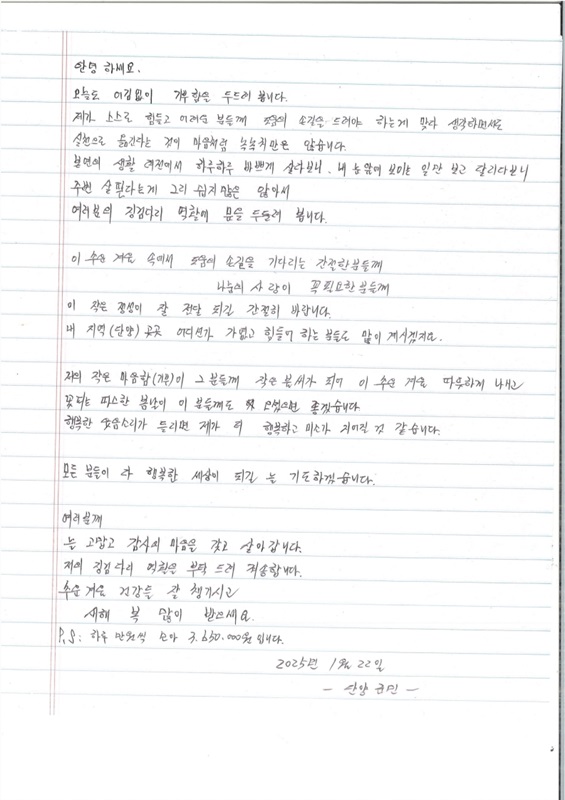 안녕 하세요.
오늘도 어김없이 기부함을 두드려 봅니다.
제가 스스로 힘들고 어려운 분들께 도움의 손길을 드려야 하는게 맞다 생각하면서도
실천으로 옮긴다는 것이 마음처럼 녹녹치만은 않습니다.
본연의 생활 여건에서 하루하루 바쁘게 살다보니. 내 눈앞에 보이는 일만 보고 달리다보니
주변 살핀다는게 그리 쉽지많은 않아서
여러분의 징검다리 역할에 문을 두들려 봅니다.
이 추운 겨울 속에서 도움의 손길을 기다리는 간절한분들께
나눔의 사랑이 꼭 필요한분들께
이 작은 정성이 잘 전달 되길 간절히 바랍니다.
내 지역(단양) 곳곳 어디선가 가엽고 힘들어 하는 분들도 많이 계시겠지요.
저의 작은 마음함(기부)이 그 분들께 작은 불씨가 되어 이 추운 겨울 따뜻하게 나내고
꽃피는 따스한 봄날이 이 분들께도 오셨으면 좋겠습니다
행복한 웃음소리가 들리면 제가 더 행복하고 미소가 지어질 것 같습니다.
모든 분들이 다 행복한 세상이 되길 늘 기도하겠습니다.
여러분께
늘 고맙고 감사의 마음을 갖고 살아갑니다.
저의 징검다리 역할을 부탁 드려 죄송합니다.
추운 겨울 건강들 잘 챙기시고
새해 복 많이 받으세요.
P.S: 하루 만원씩 모아 3.650.000원 입니다.
2025년 1월 22일
- 단양 군민 -